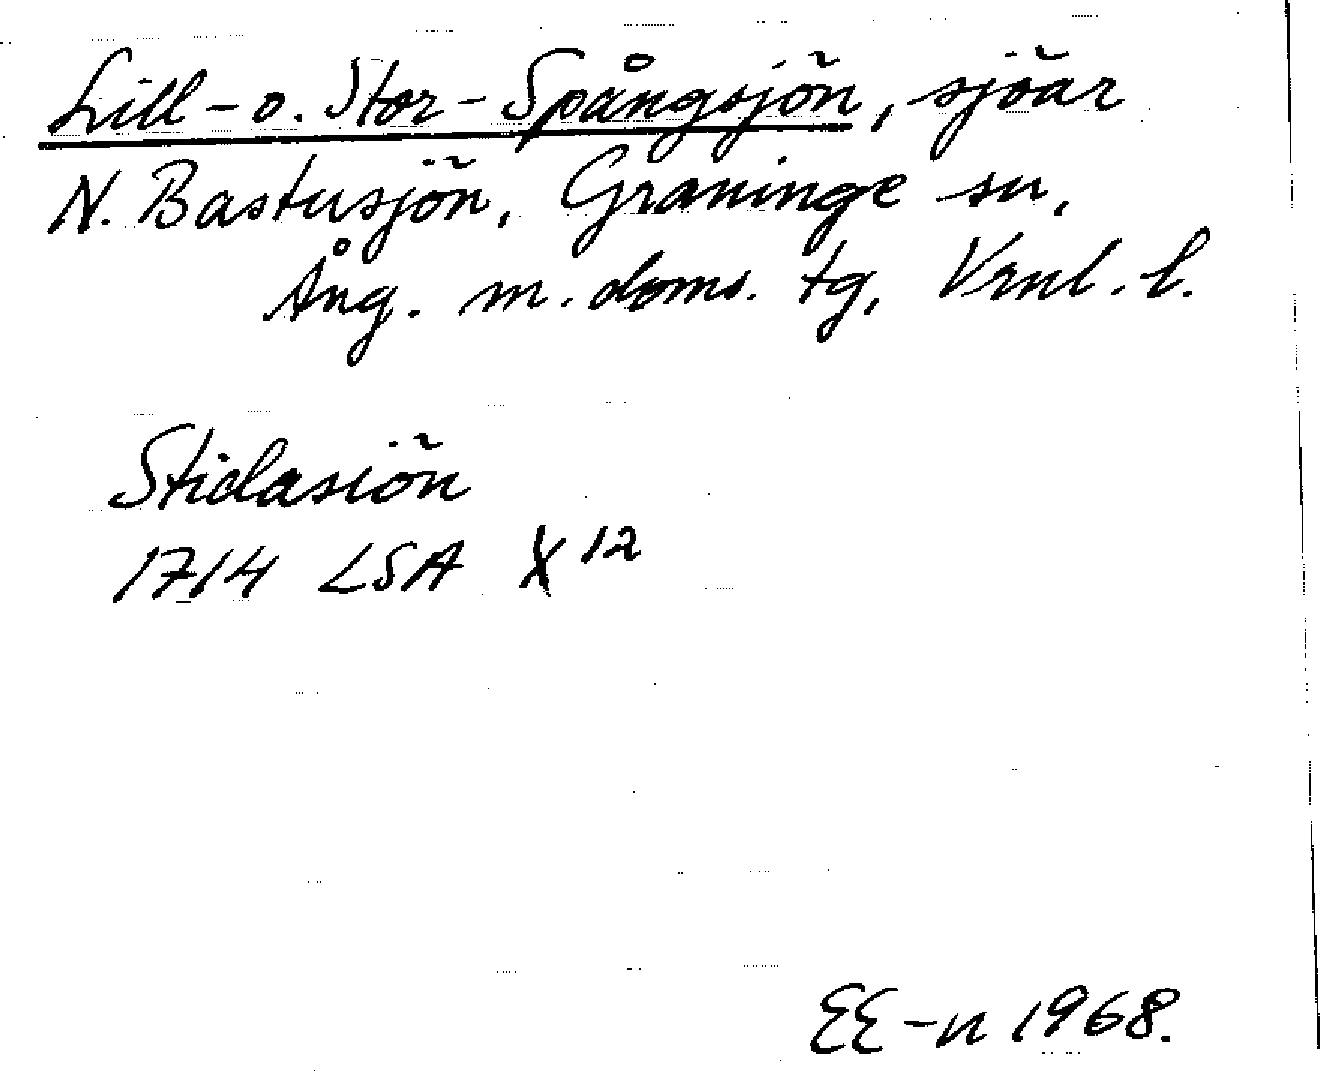 Lill- o. Stor-Spångsjön, sjöar
N. Bastusjön, Graninge sn,
Ång. m. doms. tg, Vrnl. l.
Stidasiön
1714 LSA X 12
EE-n 1968.